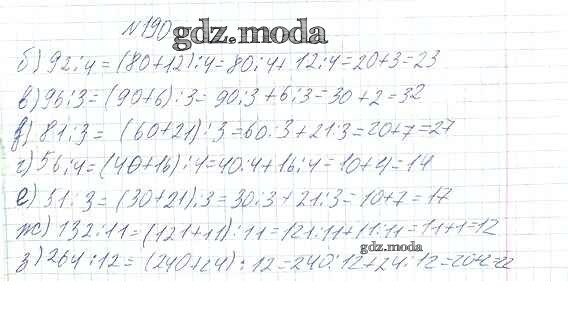 №190 gdz.moda
б) 92:4 = (80+12):4 = 80:4 + 12:4 = 20+3 = 23
в) 96:3 = (90+6):3 = 90:3 + 6:3 = 30+2 = 32
д) 81:3 = (60+21):3 = 60:3 + 21:3 = 20+7 = 27
г) 56:4 = (40+16):4 = 40:4 + 16:4 = 10+4 = 14
е) 51:3 = (30+21):3 = 30:3 + 21:3 = 10+7 = 17
ж) 132:11 = (121+11):11 = 121:11 + 11:11 = 11+1 = 12
gdz.moda
з) 264:12 = (240+24):12 = 240:12 + 24:12 = 20+2 = 22